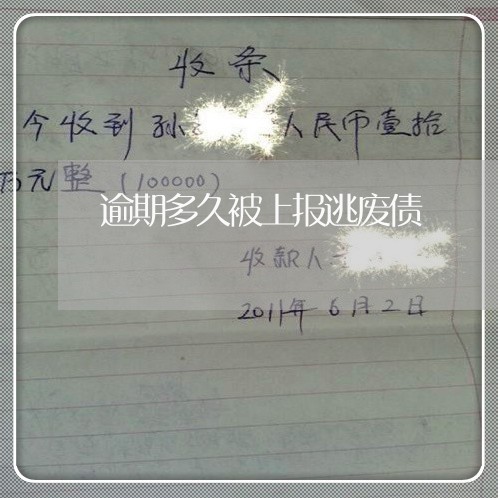 收条
今收到孙人民币壹拾
万元整（100000）
逾期多久被上报逃废债
收款人
2011年6月2日